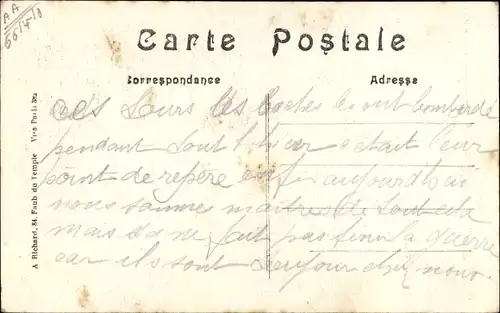 AA
6614/8
Carte Postale
Correspondance
Adresse
A Richard, 84, Faub du Temple Vve Paris
les boches les ont bombardé
pendant tout l'hiver c'était leur
point de repère enfin aujourd'hui
nous sommes maitres de tout cela
mais sa ne fait pas finir la guerre
car ils sont toujours chez nous.